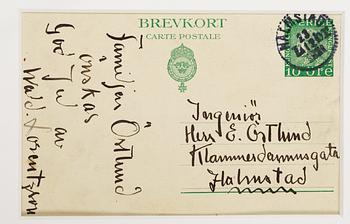 BREVKORT
CARTE POSTALE
HALMSTAD
SVERIGE
10 ÖRE
Familjen Östlund.
önskas
God Jul av
Wald. Lorentzson
Ingeniör
Herr E. Östlund
Klammerdammsgatan
Halmstad